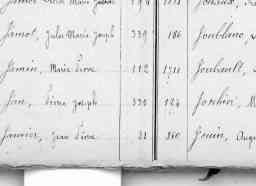 Jamot, Jules Marie Joseph 339 186 Joublanc,
Jamin, Marie Pierre 112 1711 Joubault,
Jan, Pierre Joseph 330 124 Josselin, M
Janvier, Jean Pierre 21 360 Jouin, Aug